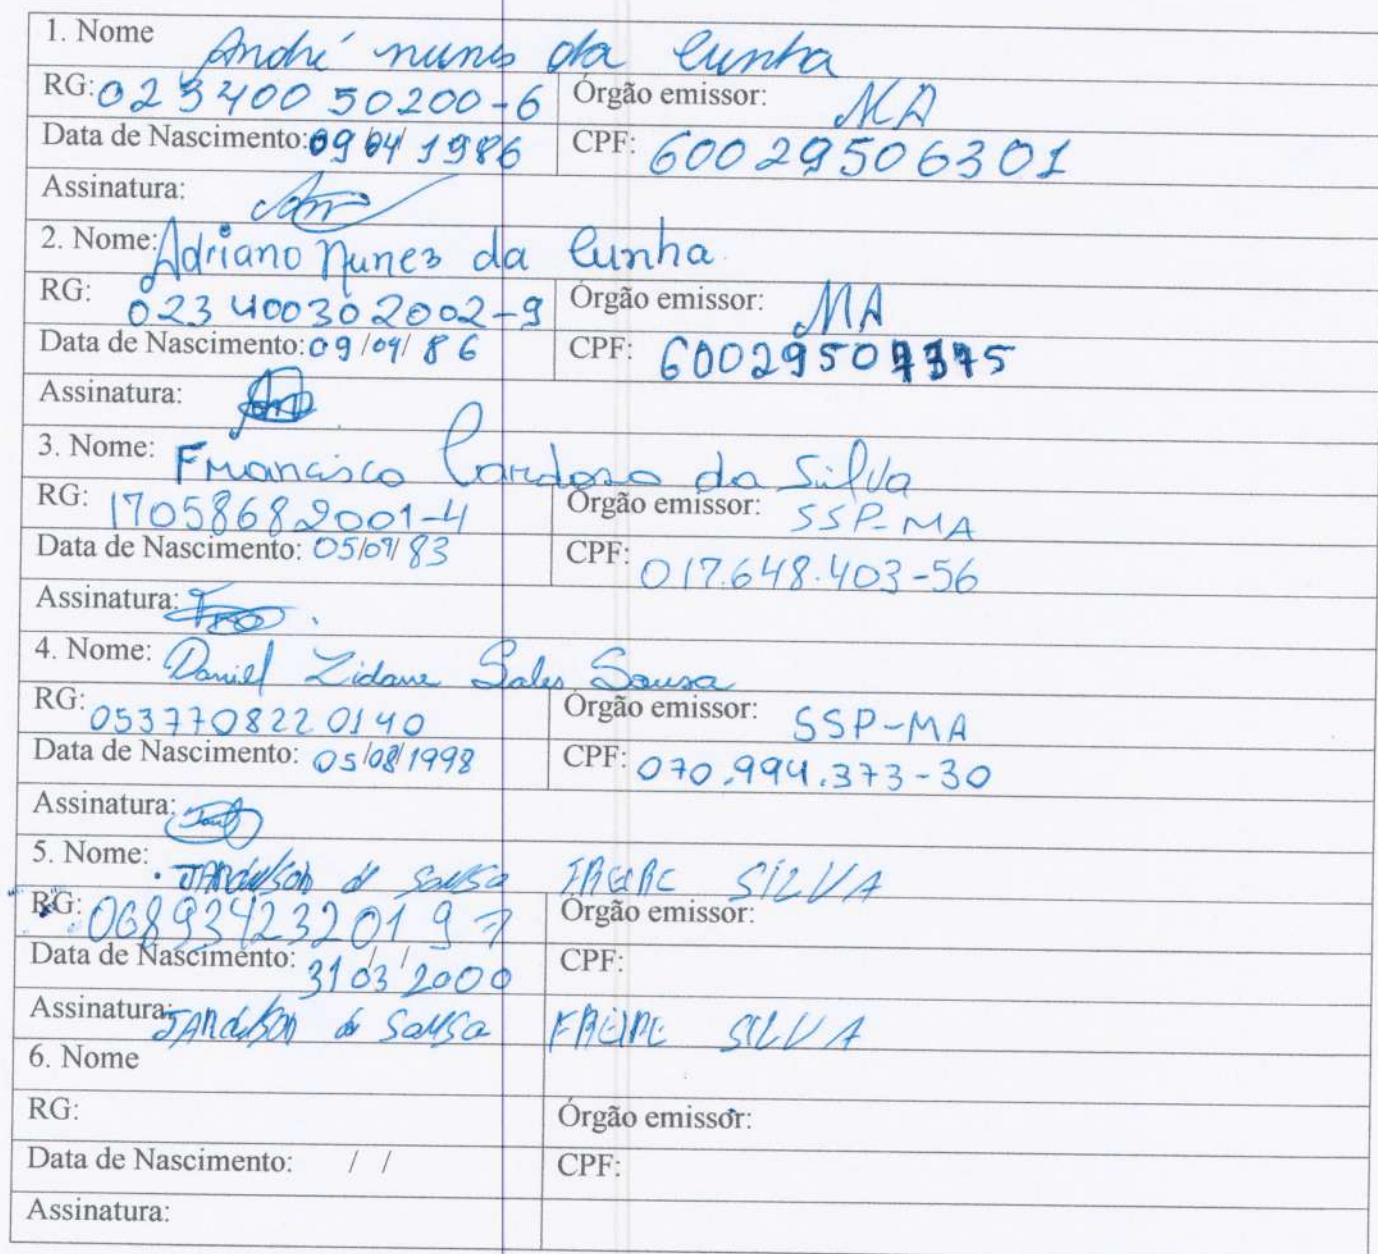 1. Nome André nunes da Cunha
RG: 023400 50200-6 Órgão emissor: MA
Data de Nascimento: 09/04/1986 CPF: 60029506301
Assinatura:
2. Nome: Adriano Nunes da Cunha
RG: 023400302002-9 Órgão emissor: MA
Data de Nascimento: 09/04/86 CPF: 60029507375
Assinatura:
3. Nome: Francisco Cardoso da Silva
RG: 17058682001-4 Órgão emissor: SSP-MA
Data de Nascimento: 05/07/83 CPF: 017.648.403-56
Assinatura:
4. Nome: Daniel Zidane Sales Sousa
RG: 0537708220140 Órgão emissor: SSP-MA
Data de Nascimento: 05/08/1998 CPF: 070.994.373-30
Assinatura:
5. Nome: de Sousa FREIRE SILVA
RG: 0689342320197 Órgão emissor:
Data de Nascimento: 31/03/2000 CPF:
Assinatura: de Sousa FREIRE SILVA
6. Nome
RG: Órgão emissor:
Data de Nascimento: / / CPF:
Assinatura: